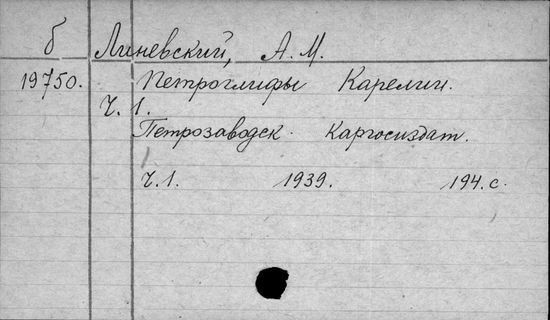 б Линевский, А. М.
19750. Петроглифы Карелии.
Ч. 1.
Петрозаводск. Каргосиздат.
Ч. 1. 1939. 194. с.